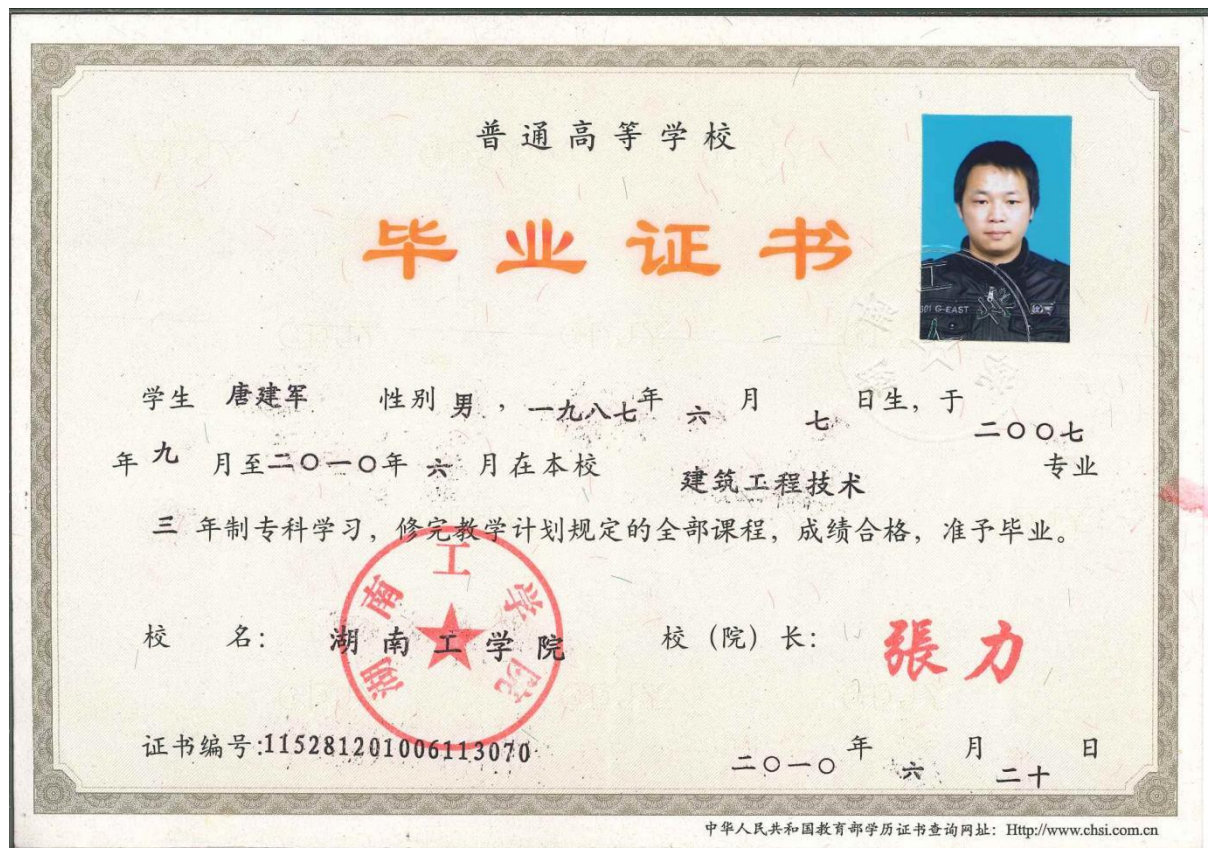 普通高等学校
毕业证书
301 G-EAST
学生 唐建军 性别 男 ，一九八七年 六 月 七 日生，于 二〇〇七
年 九 月至二〇一〇年 六 月在本校 建筑工程技术 专业
三 年制专科学习，修完教学计划规定的全部课程，成绩合格，准予毕业。
湖南工学院
校 名： 湖南工学院 校（院）长： 張力
证书编号:115281201006113070
二〇一〇 年 六 月 二十 日
中华人民共和国教育部学历证书查询网址：Http://www.chsi.com.cn